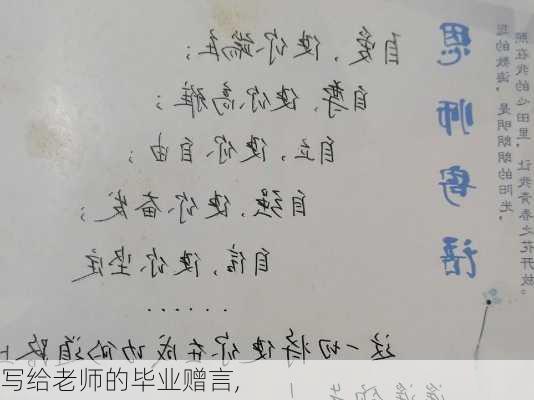 恩师寄语
您的教诲，是明朗朗的阳光，
照在我的心田里，让我青春之花开放。
自爱，使你端庄；
自尊，使你高雅；
自立，使你自由；
自强，使你奋发；
自信，使你坚定
······
这一切将使你在成功的道路上
写给老师的毕业赠言,